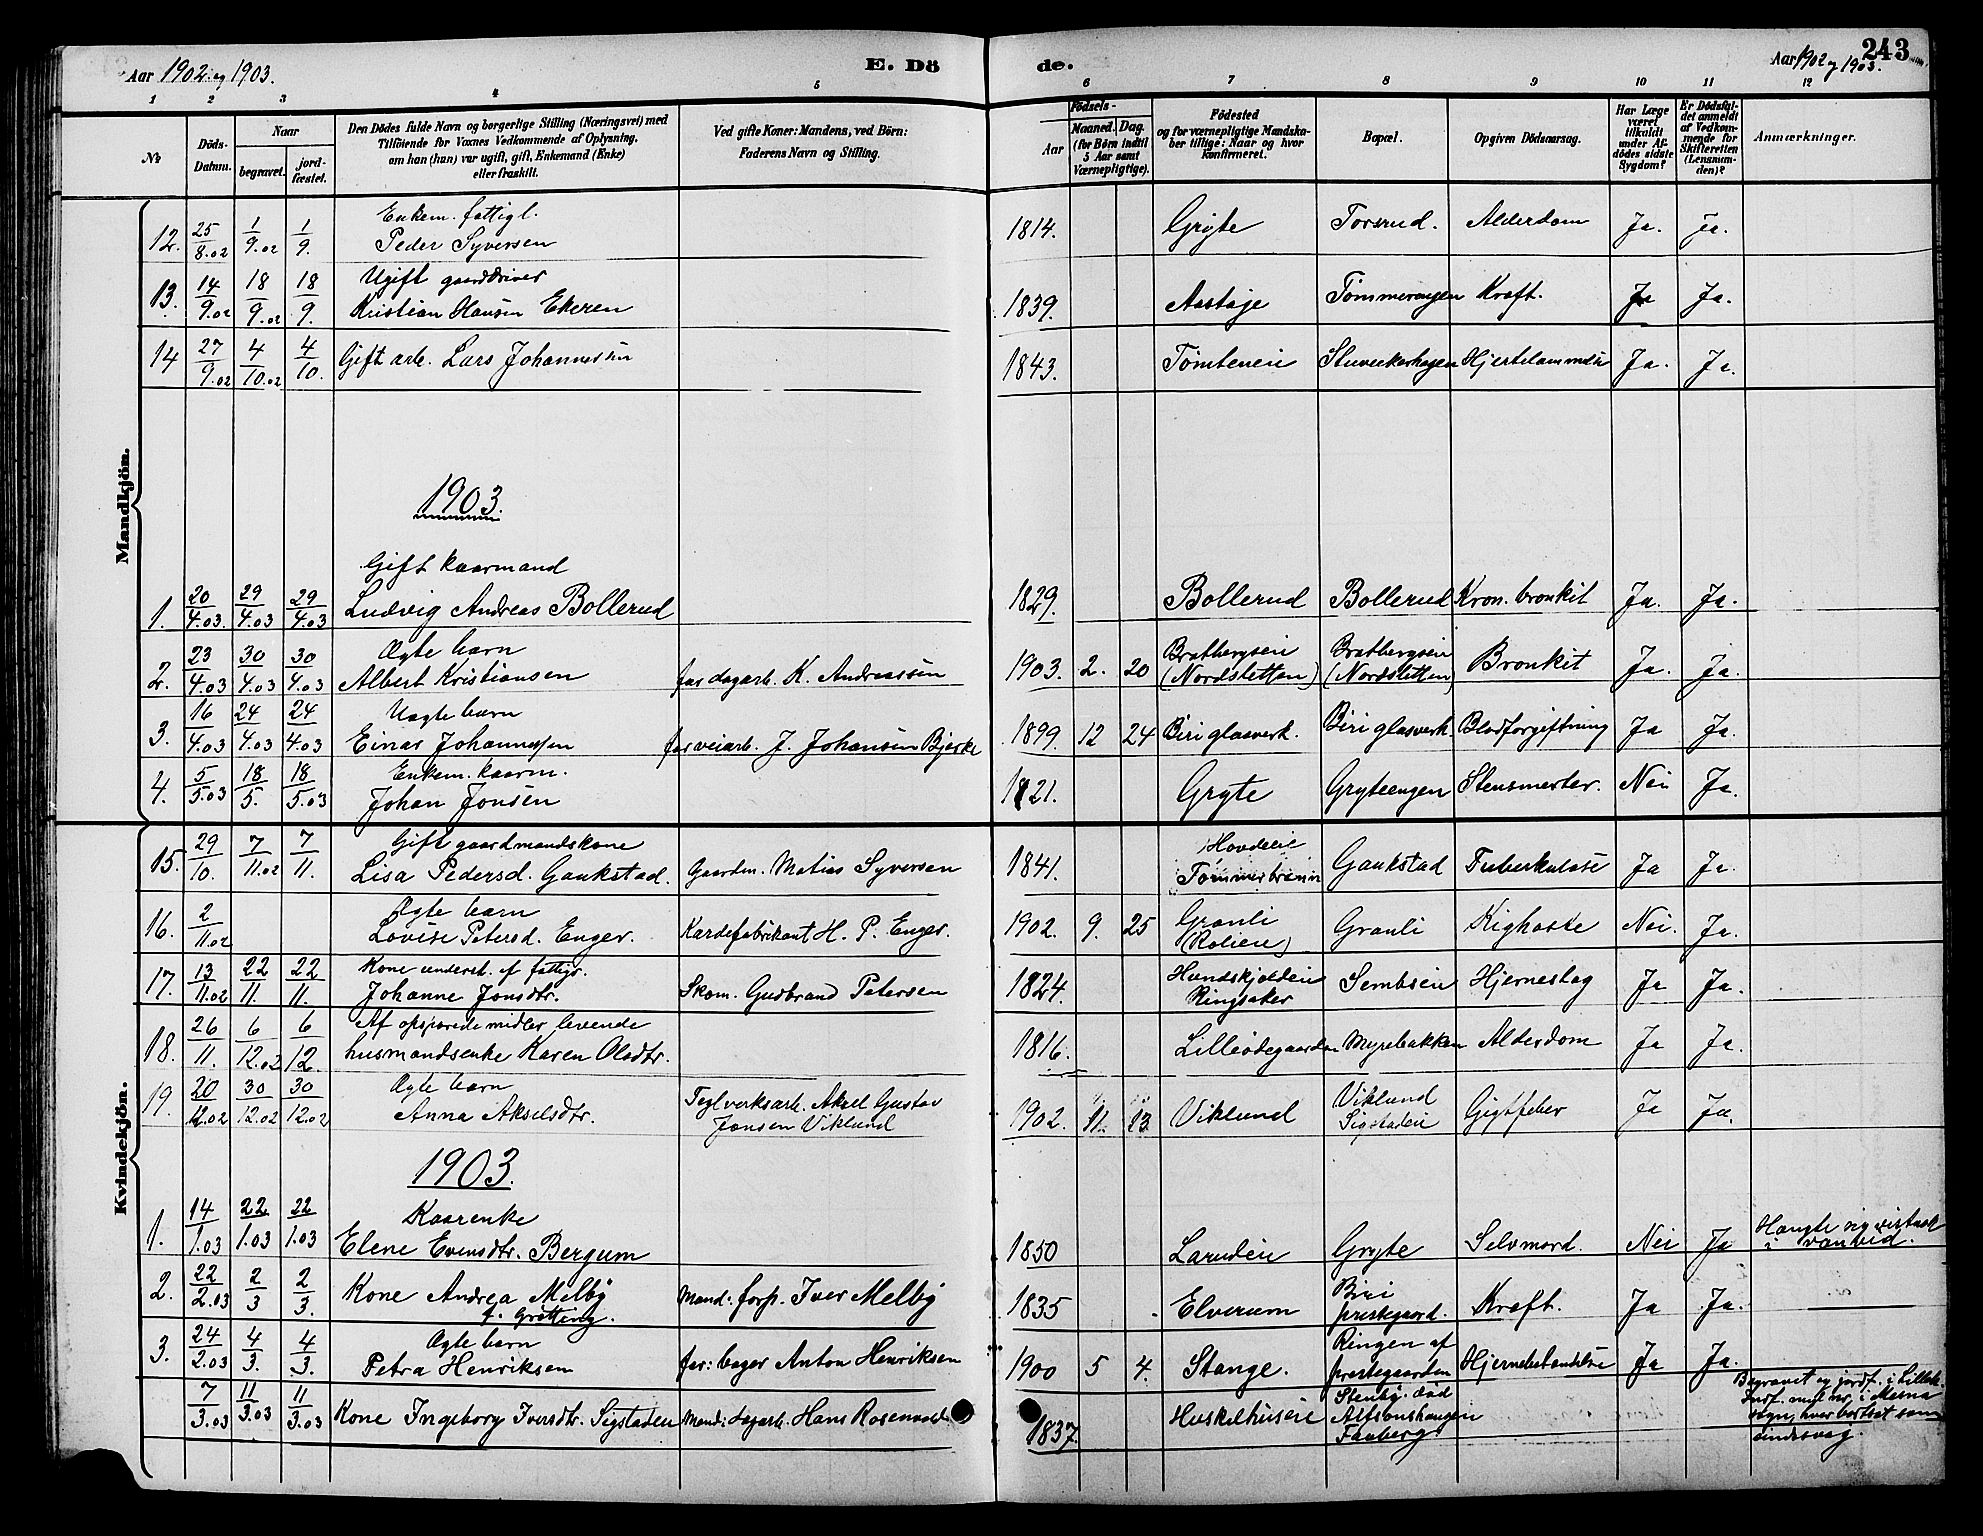 Aar 1902 og 1903.
E. Dö
de.
Aar 1902 og 1903.
243
1 2 3 4 5 6 7 8 9 10 11 12
No
Döds-Datum.
Naar
begravet.
jord-fæstet.
Den Dödes fulde Navn og borgerlige Stilling (Næringsvei) med
Tilföiende for Voxnes Vedkommende af Oplysning,
om han (hun) var ugift, gift, Enkemand (Enke)
eller fraskilt.
Ved gifte Koner: Mandens, ved Börn:
Faderens Navn og Stilling.
Födsels-
Aar
Maaned.
Dag.
(for Börn indtil
5 Aar samt
Værnepligtige).
Födested
og for værnepligtige Mandska-
ber tillige: Naar og hvor
konfirmeret.
Bopæl.
Opgiven Dödsaarsag.
Har Læge
været
tilkaldt
under Af-
dödes sidste
Sygdom?
Er Dödsfal-
det anmeldt
af Vedkom-
mende for
Skifteretten
(Lensman-
den)?
Anmærkninger.
Mandkjön.
Enkem. fattigl.
12. 25/8.02 1/9.02 1/9. Peder Syversen 1814. Gryte Torsrud. Alderdom Ja. Ja.
Ugift gaardbriver
13. 14/9.02 18/9.02 18/9. Kristian Hansen Ekeren 1839. Aastaje Tømmerengen Kræft. Ja Ja.
14 27/9.02 4/10.02 4/10. Gift arb. Lars Johannesen 1843. Tømteneie Hjertelammelse Ja. Ja.
1903.
Gift kaarmand
1. 20/4.03. 29/4.03 29/4.03 Ludvig Andreas Bollerud 1829. Bollerud Bollerud Kron. bronkit Ja. Ja.
Ægte barn
2. 23/4.03 30/4.03 30/4.03 Albert Kristiansen far dagarb. K. Andreassen 1903. 2. 20 Bratbergseie (Nordsletten) Bratbergseie (Nordsletten) Bronkit Ja. Ja.
Uægte barn
3. 16/4.03 24/4.03 24/4.03 Einar Johannessen far veiarb. J. Johansen Bjerke 1899. 12 24 Biri glasverk. Biri glasverk Blodforgiftning Ja Ja.
Enkem. kaarm.
4. 5/5.03 18/5. 18/5.03 Johan Jonsen 1821. Gryte Gryteengen Stensmerter. Nei Ja.
Kvindekjön.
Gift gaardmandskone
15. 29/10. 7/11.02 7/11. Lisa Pedersd. Gaukstad. Gaardm. Matias Syversen 1841. Hovdeie Gaukstad Tuberkulose Ja Ja.
Ægte barn
16. 2/11.02 Lovise Petersd. Enger. Kardefabrikant H. P. Enger. 1902. 9. 25 Granli Granli Kighoste Nei. Ja.
Kone underst. af fattigv.
17. 13/11.02 22/11. 22/11. Johanne Jonsdtr. Skom. Gudbrand Petersen 1824. Hundskjoldeie Ringsaker Sembseie Hjerneslag Ja Ja.
Af opsparede midler levende
18. 26/11. 6/12.02 6/12. husmandsenke Karen Olsdtr. 1816. Lilleødegaarden Myrebakken Alderdom Ja Ja.
Ægte barn
19. 20/12.02 30/12.02 30/12.02 Anna Akselsdtr. Teglverksarb. Aksel Gustav Jonsen Viklund 1902. 11. 13. Viklund Viklund Sigstadeie Gigtfeber Ja Ja.
1903.
Kaarenke
1. 14/1.03 22/1.03 22/1.03 Elene Evensdtr. Bergum 1850 Larudeie Gryte Selvmord. Nei Ja Hængte sig i vanvid.
2. 22/2.03 2/3 2/3. Kone Andrea Melby f. Grøtting. Mand: forp. Iver Melby 1835 Elverum Biri prestegaard. Kræft. Ja Ja.
Ægte barn
3. 24/2.03 4/3. 4/3. Petra Henriksen far: bager Anton Henriksen 1900 5 4. Stange. Ringen af prestegaarden Hjernebetændelse Ja Ja.
7/3.03 11/3.03 11/3.03 Kone Ingeborg Iversdtr. Sigstadeie Mand: dagarb. Hans Rosenvold 1837. Huskelhuseie Faaberg Begravet og jordf. i Lilleh.